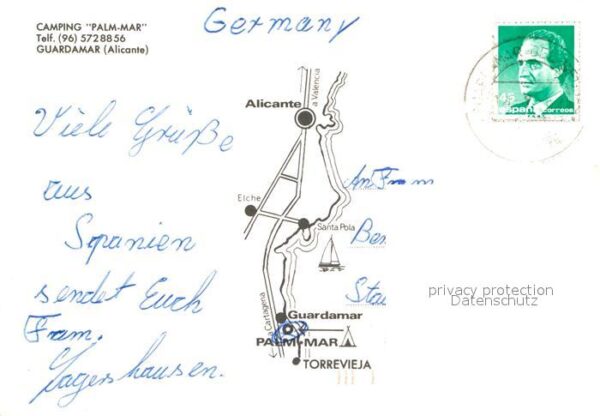 CAMPING "PALM-MAR"
Telf. (96) 5728856
GUARDAMAR (Alicante)
Germany
45
españa correos
Viele Grüße
aus
Spanien
sendet Euch
Fram.
a Valencia
Alicante
Elche
Santa Pola
a Cartagena
Guardamar
PALM-MAR
TORREVIEJA
An Fram
privacy protection
Datenschutz